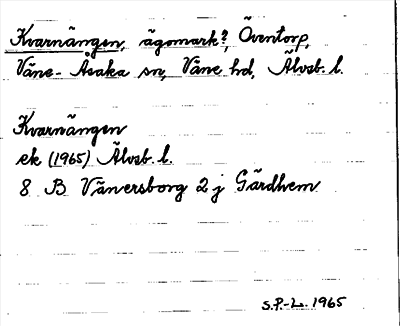 Kvarnängen, ägomark?, Öventorp,
Väne-Åsaka sn, Väne hd, Älvsb. l.
Kvarnängen
ek (1965) Älvsb. l.
8 B Vänersborg 2 j Gärdhem
S.P.-L. 1965